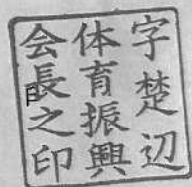 字楚辺
体育振興
会長之印